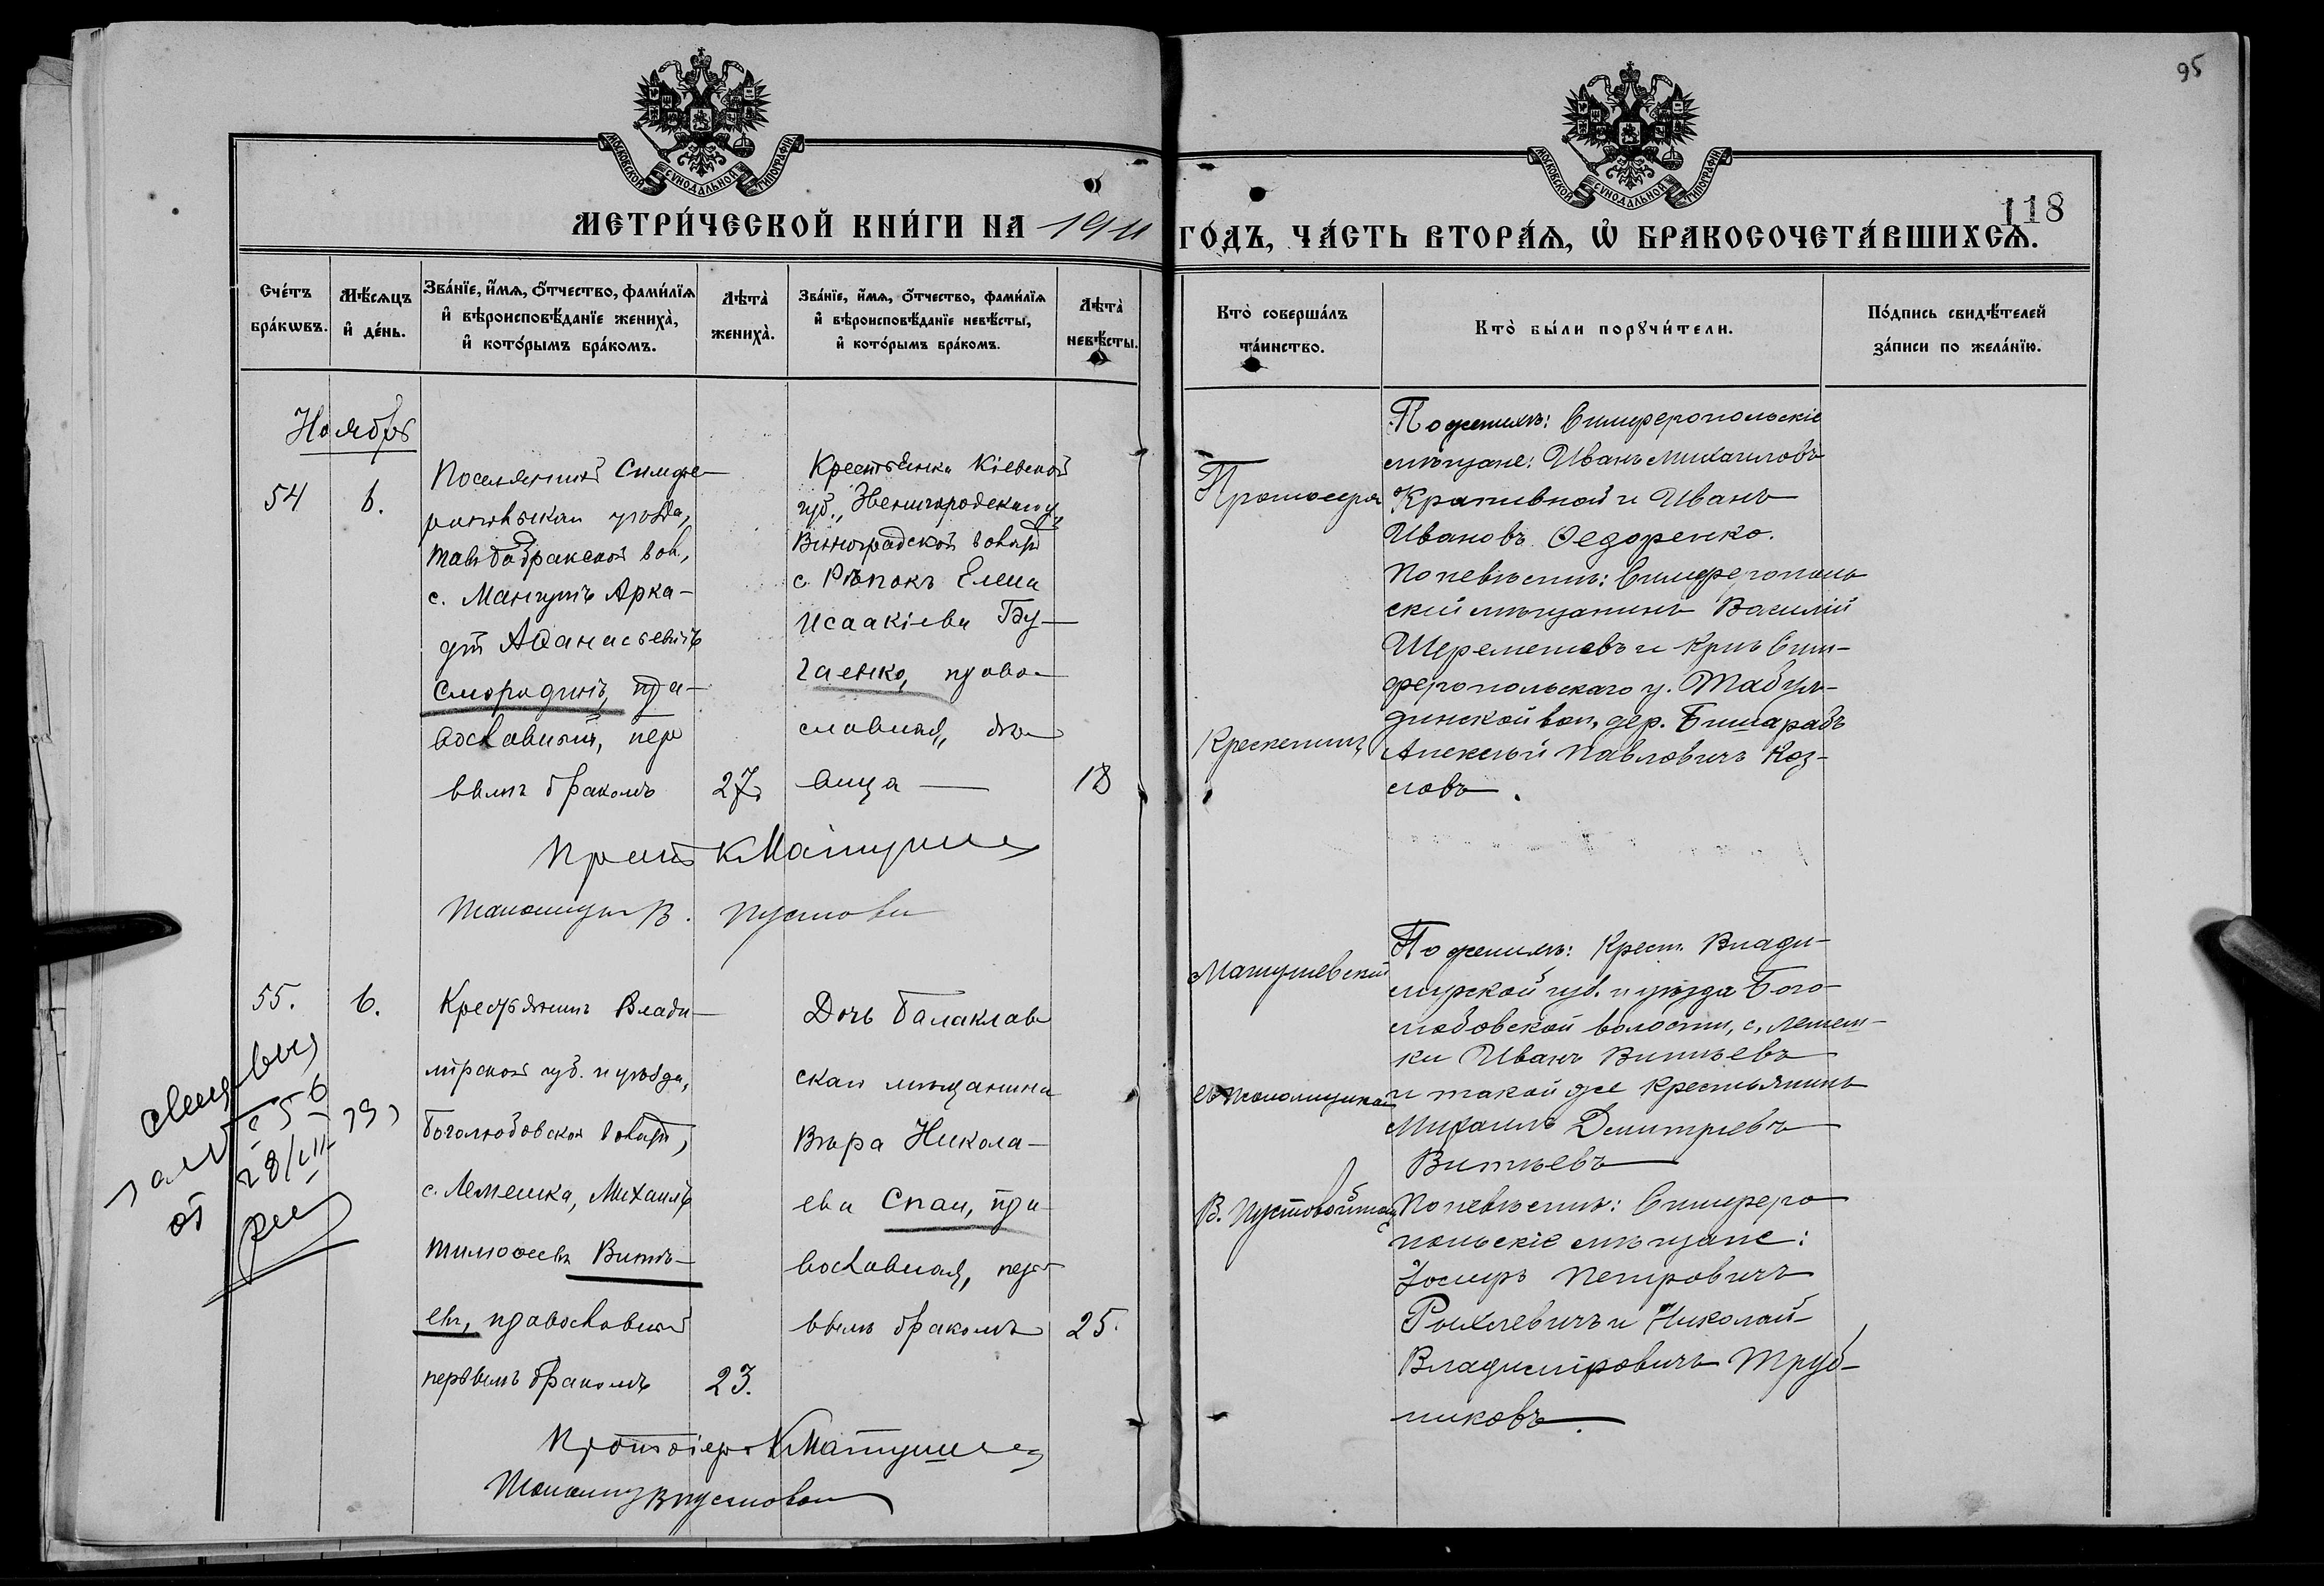 95
118
МОСКОВСКОЙ СѴНОДАЛЬНОЙ ТИПОГРАФІИ.
МОСКОВСКОЙ СѴНОДАЛЬНОЙ ТИПОГРАФІИ.
МЕТРИ́ЧЕСКОЙ КНИ́ГИ НА 1911
ГО́ДЪ, ЧА́СТЬ ВТОРА́Ѧ, Ѽ БРАКОСОЧЕТА́ВШИХСѦ.
Сче́тъ
бра́кѡвъ.
Мѣ́сѧцъ
и҆ де́нь.
Зва́нїе, и҆́мѧ, ѻ҆́тчество, фами́лїѧ
и҆ вѣроисповѣ́данїе жениха̀,
и҆ кото́рымъ бра́комъ.
Лѣта̀
жениха̀.
Зва́нїе, и҆́мѧ, ѻ҆́тчество, фами́лїѧ
и҆ вѣроисповѣ́данїе невѣ́сты,
и҆ кото́рымъ бра́комъ.
Лѣта̀
невѣ́сты.
Кто̀ соверша́лъ
та́инство.
Кто̀ бы́ли порꙋчи́тели.
По́дпись свидѣ́телей
за́писи по жела́нїю.
Ноябрь
54
6.
Поселянинъ Симфе-
уѣзда,
вол.,
с. Мангушъ Арка-
дій Аѳанасьевичъ
Смородинъ, пра-
вославный, пер
вымъ бракомъ
27.
Крестьянка Кіевской
губ., Звенигородскаго у.,
Виноградской волости
с. Рѣпокъ Елена
Исаакіева Гау-
гаенко, право-
славная, дѣ-
вица
18
Протоіерей
Крескентинъ
Матушевскій
съ псаломщикомъ
В. Пустовойтомъ
По женихѣ: Симферопольскіе
мѣщане: Иванъ Михаиловъ
Крапивной и Иванъ
Ивановъ Ѳедоренко.
По невѣстѣ: Симферополь
скій мѣщанинъ Василій
Шереметевъ и крнъ Сим-
феропольскаго у. Табул-
динской вол., дер. Бишарабъ
Алексѣй Павловичъ Коз-
ловъ.
Прот. К Матушев
Псаломщик В. Пустово
55.
6.
Крестьянинъ Влади-
мірской губ. и уѣзда,
Боголюбовской волости,
с. Лемешка, Михаилъ
Тимоѳеевъ Вить-
евъ, православный
первымъ бракомъ
23.
Дочь Балаклав
скаго мѣщанина
Вѣра Никола-
ева Спаи, пра
вославная, пер
вымъ бракомъ
25.
По женихѣ: Крест. Влади-
мірской губ. и уѣзда Бого-
любовской волости, с. Лемеш-
ки Иванъ Витьевъ
и такой же крестьянинъ
Михаилъ Димитріевъ
Витьевъ
По невѣстѣ: Симферо
польскіе мѣщане:
Іосифъ Петровичъ
Рыхлевичъ и Николай
Владиміровичъ Труб-
никовъ.
Протоіерей К Матушев
Псаломщ В Пустовой